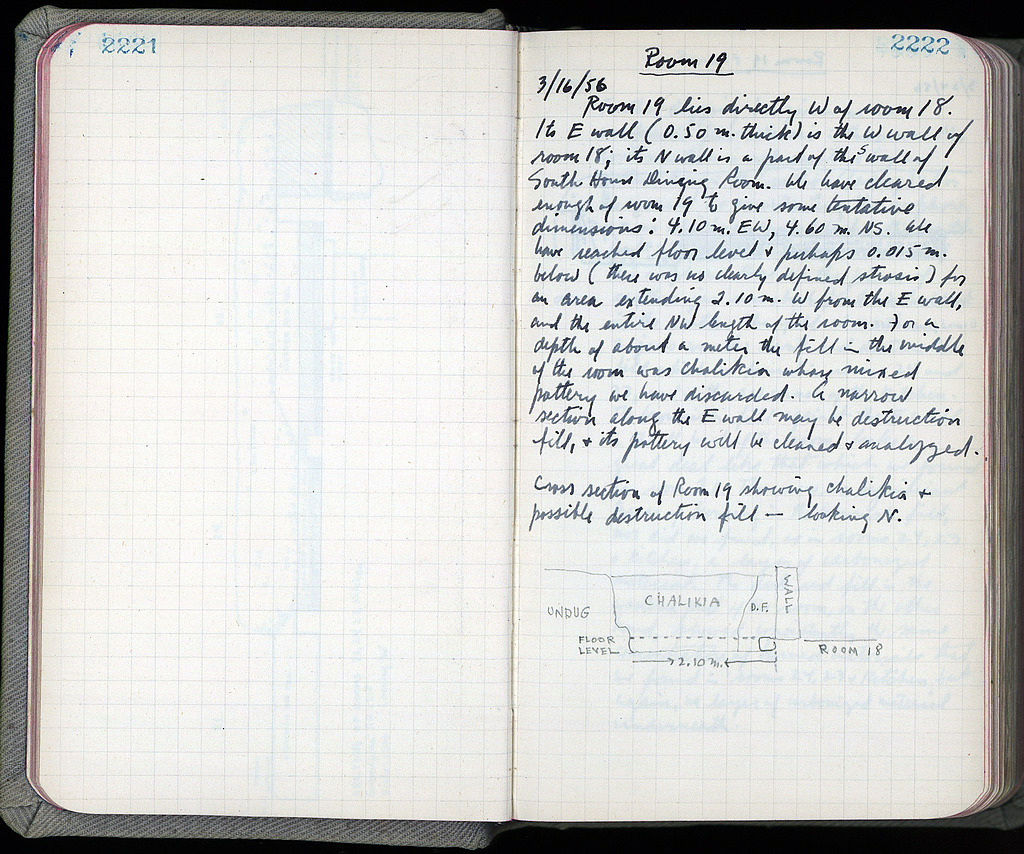 2221
2222
Room 19
3/16/56
Room 19 lies directly W of room 18.
Its E wall (0.50 m. thick) is the W wall of
room 18; its N wall is a part of the S wall of
South House Dinging Room. We have cleared
enough of room 19 to give some tentative
dimensions: 4.10 m. EW, 4.60 m. NS. We
have reached floor level + perhaps 0.015 m.
below (there was no clearly defined strosis) for
an area extending 2.10 m. W from the E wall,
and the entire NW length of the room. For a
depth of about a meter the fill in the middle
of the room was chalikia whose mixed
pottery we have discarded. A narrow
section along the E wall may be destruction
fill, + its pottery will be cleaned + analyzed.
Cross section of Room 19 showing chalikia +
possible destruction fill — looking N.
UNDUG
CHALIKIA
D.F.
WALL
FLOOR
LEVEL
2.10 m.
ROOM 18